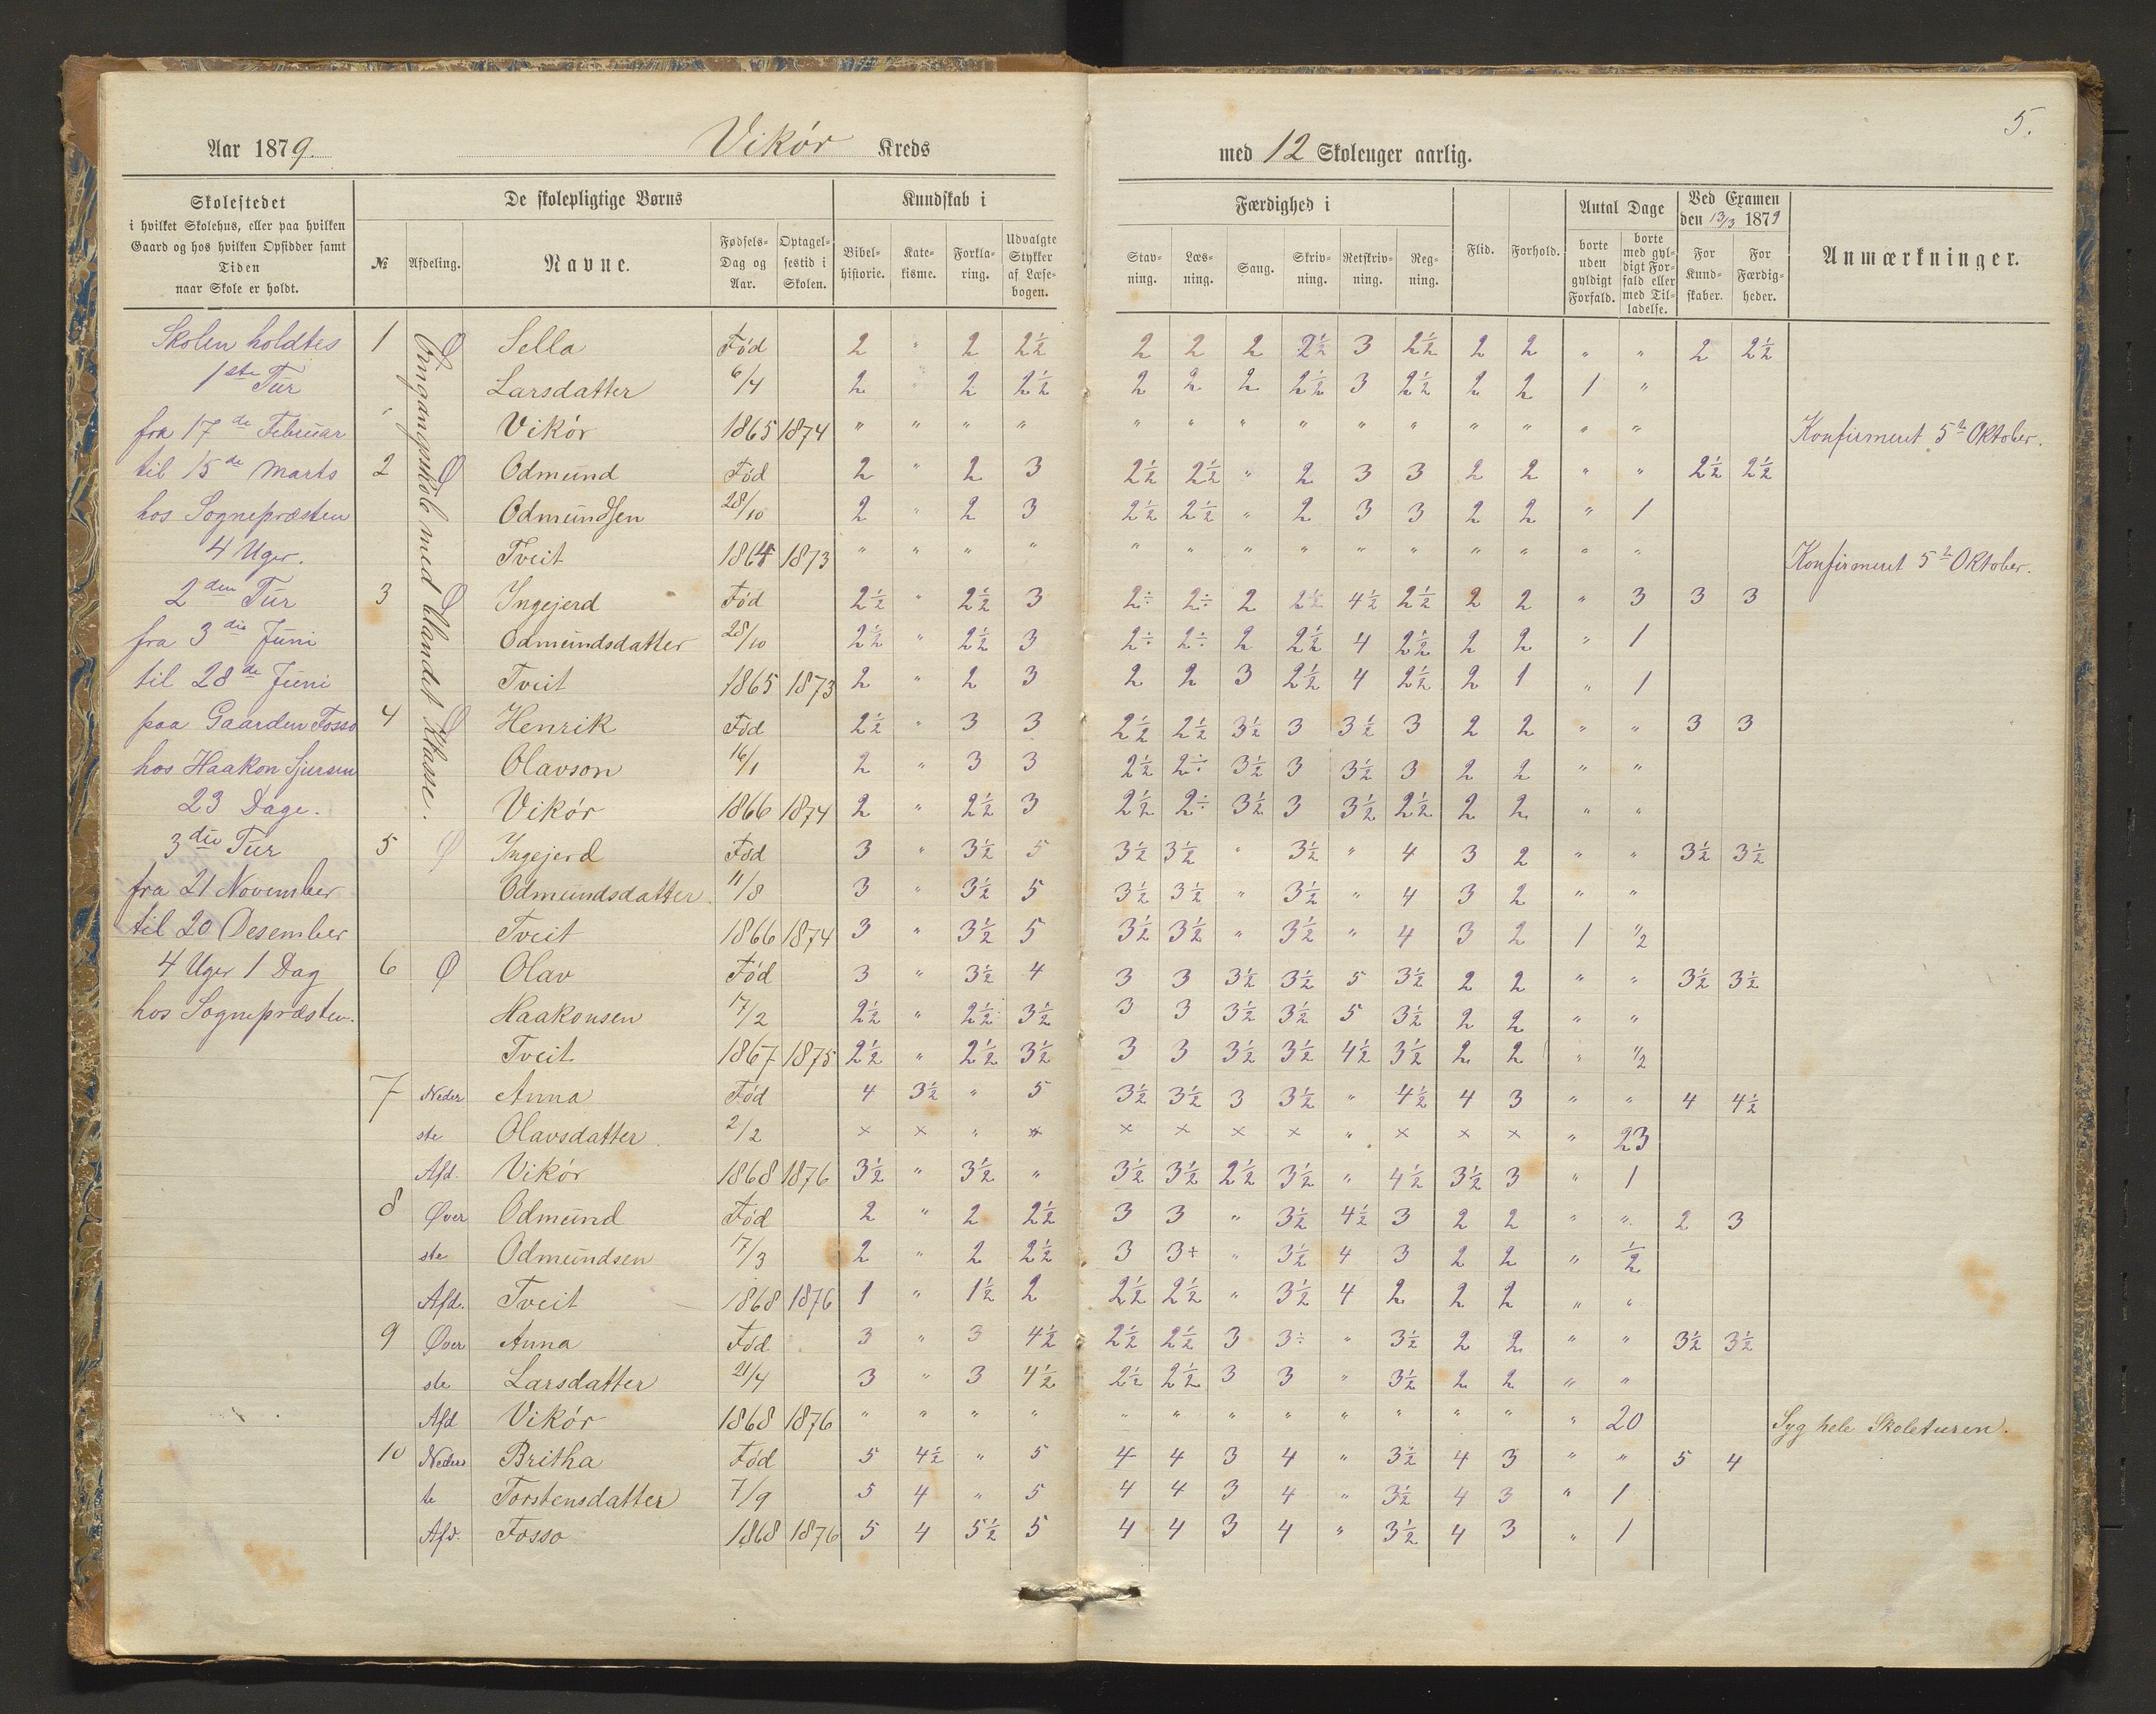 5.
Aar 1879. Vikór Kreds med 12 Skoleuger aarlig.
Skolestedet i hvilket Skolehus, eller paa hvilken Gaard og hos hvilken Opsidder samt Tiden naar Skole er holdt.
De skolepligtige Børns
№ Afdeling. Navne. Fødsels-Dag og Aar. Optagelsestid i Skolen.
Kundskab i
Bibelhistorie. Katekisme. Forklaring. Udvalgte Stykker af Læsebogen.
Færdighed i
Stavning. Læsning. Sang. Skrivning. Retskrivning. Regning.
Flid. Forhold.
Antal Dage
borte uden gyldigt Forfald. borte med gyldigt Forfald eller med Tilladelse.
Ved Examen den 13/3 1879
For Kundskaber. For Færdigheder.
Anmærkninger.
Skolen holdtes
1ste Tur
fra 17de Februar
til 15de Marts
hos Sognepræsten
4 Uger.
2den Tur
fra 3die Juni
til 28de Juni
paa Gaarden Fosso
hos Haakon Sjursen
23 Dage.
3die Tur
fra 21 November
til 20 Desember
4 Uger 1 Dag
hos Sognepræsten.
Omgangsskole med blandet Klasse.
1 Ø Sella Fód 2 " 2 2½ 2 2 2 2½ 3 2½ 2 2 " " 2 2½
Larsdatter 6/4 2 " 2 2½ 2 2 2 2½ 3 2½ 2 2 1 "
Vikór 1865 1874 " " " " " " " " " " " " " " Konfirmeret 5te Oktober.
2 Ø Odmund Fód 2 " 2 3 2½ 2½ " 2 3 3 2 2 " " 2½ 2½
Odmundsen 28/10 2 " 2 3 2½ 2½ " 2 3 3 2 2 " 1
Tveit 1864 1873 " " " " " " " " " " " " " " Konfirmeret 5te Oktober.
3 Ø Ingejerd Fód 2½ " 2½ 3 2÷ 2÷ 2 2½ 4½ 2½ 2 2 " 3 3 3
Odmundsdatter 28/10 2½ " 2½ 3 2÷ 2÷ 2 2½ 4 2½ 2 2 " 1
Tveit 1865 1873 2 " 2 3 2 2 3 2½ 4 2½ 2 1 " 1
4 Ø Henrik Fód 2½ " 3 3 2½ 2½ 3½ 3 3½ 3 2 2 " " 3 3
Olavson 16/1 2 " 3 3 2½ 2÷ 3½ 3 3½ 3 2 2 " "
Vikór 1866 1874 2 " 2½ 3 2½ 2÷ 3½ 3 3½ 2½ 2 2 " "
5 Ø Ingejerd Fód 3 " 3½ 5 3½ 3½ " 3½ " 4 3 2 " " 3½ 3½
Odmundsdatter 11/8 3 " 3½ 5 3½ 3½ " 3½ " 4 3 2 " "
Tveit 1866 1874 3 " 3½ 5 3½ 3½ " 3½ " 4 3 2 1 ½
6 Ø Olav Fód 3 " 3½ 4 3 3 3½ 3½ 5 3½ 2 2 " " 3½ 3½
Haakonsen 17/2 2½ " 2½ 3½ 3 3 3½ 3½ 5 3½ 2 2 " "
Tveit 1867 1875 2½ " 2½ 3½ 3 3 3½ 3½ 4½ 3½ 2 2 " ½
7 Neder Anna Fód 4 3½ " 5 3½ 3½ 3 3½ " 4½ 4 3 " " 4 4½
ste Olavsdatter. 2/2 × × " × × × × × " × × × " 23
Afd. Vikór 1868 1876 3½ " 3½ " 3½ 3½ 2½ 3½ " 4½ 3½ 3 " 1
8 Øver Odmund Fód 2 " 2 2½ 3 3 " 3½ 4½ 3 2 2 " " 2 3
ste Odmundsen 17/3 2 " 2 2½ 3 3+ " 3½ 4 3 2 2 " ½
Afd. Tveit 1868 1876 1 " 1½ 2 2½ 2½ " 3½ 4 2 2 2 " "
9 Øver Anna Fód 3 " 3 4½ 2½ 2½ 3 3÷ " 3½ 2 2 " " 3½ 3½
ste Larsdatter 21/4 3 " 3 4½ 2½ 2½ 3 3 " 3½ 2 2 " "
Afd Vikór 1868 1876 " " " " " " " " " " " " " 20 Syg hele Skoleturen.
10 Neders Britha Fód 5 4½ " 5 4 4 3 4 " 3½ 4 3 " " 5 4
te Torstensdatter 7/9 5 4 " 5 4 4 3 4 " 3½ 4 3 " 1
Afd. Fosso 1868 1876 5 4 5½ 5 4 4 3 4 " 3½ 4 3 " 1